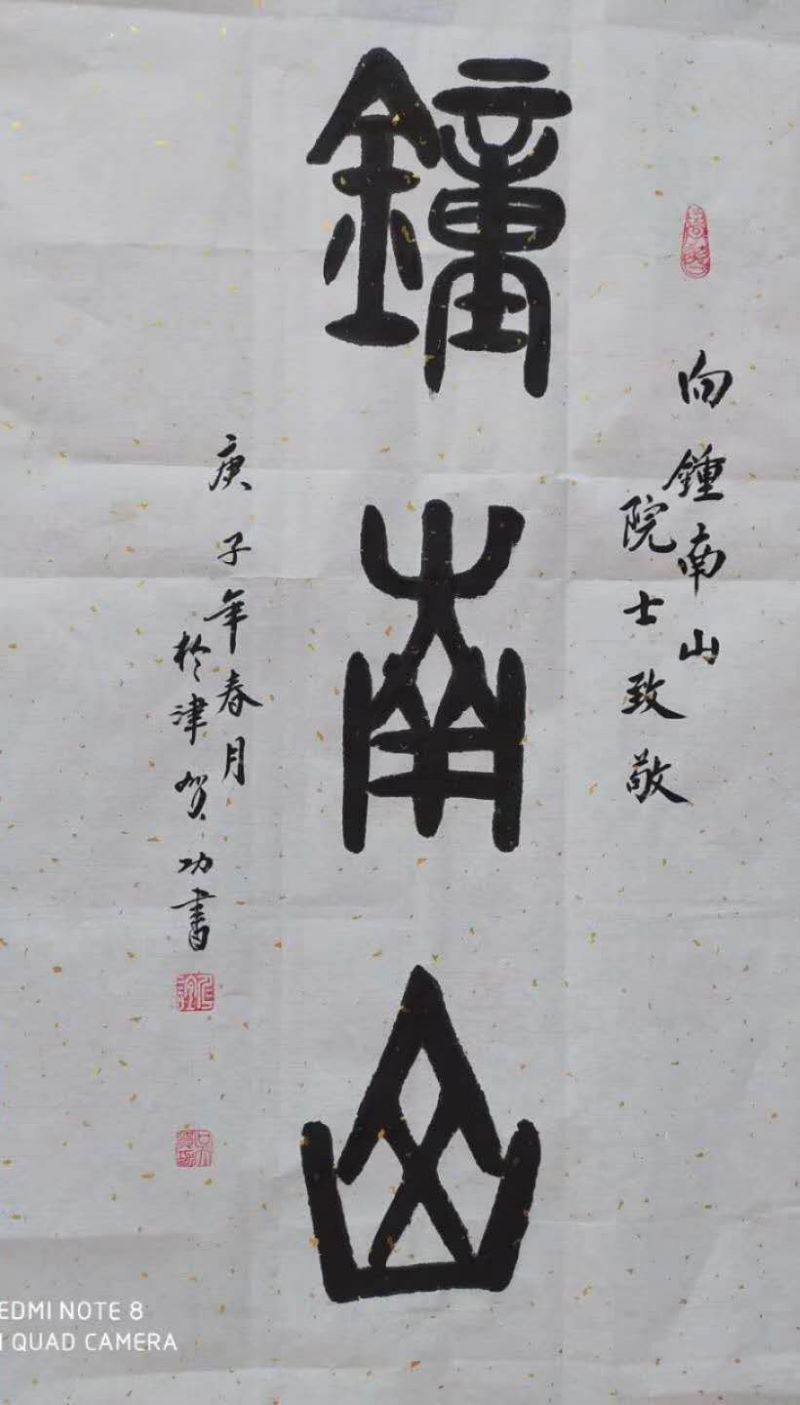 向鍾南山
院士致敬
鐘南山
庚子年春月
於津贺功書
REDMI NOTE 8
AI QUAD CAMERA